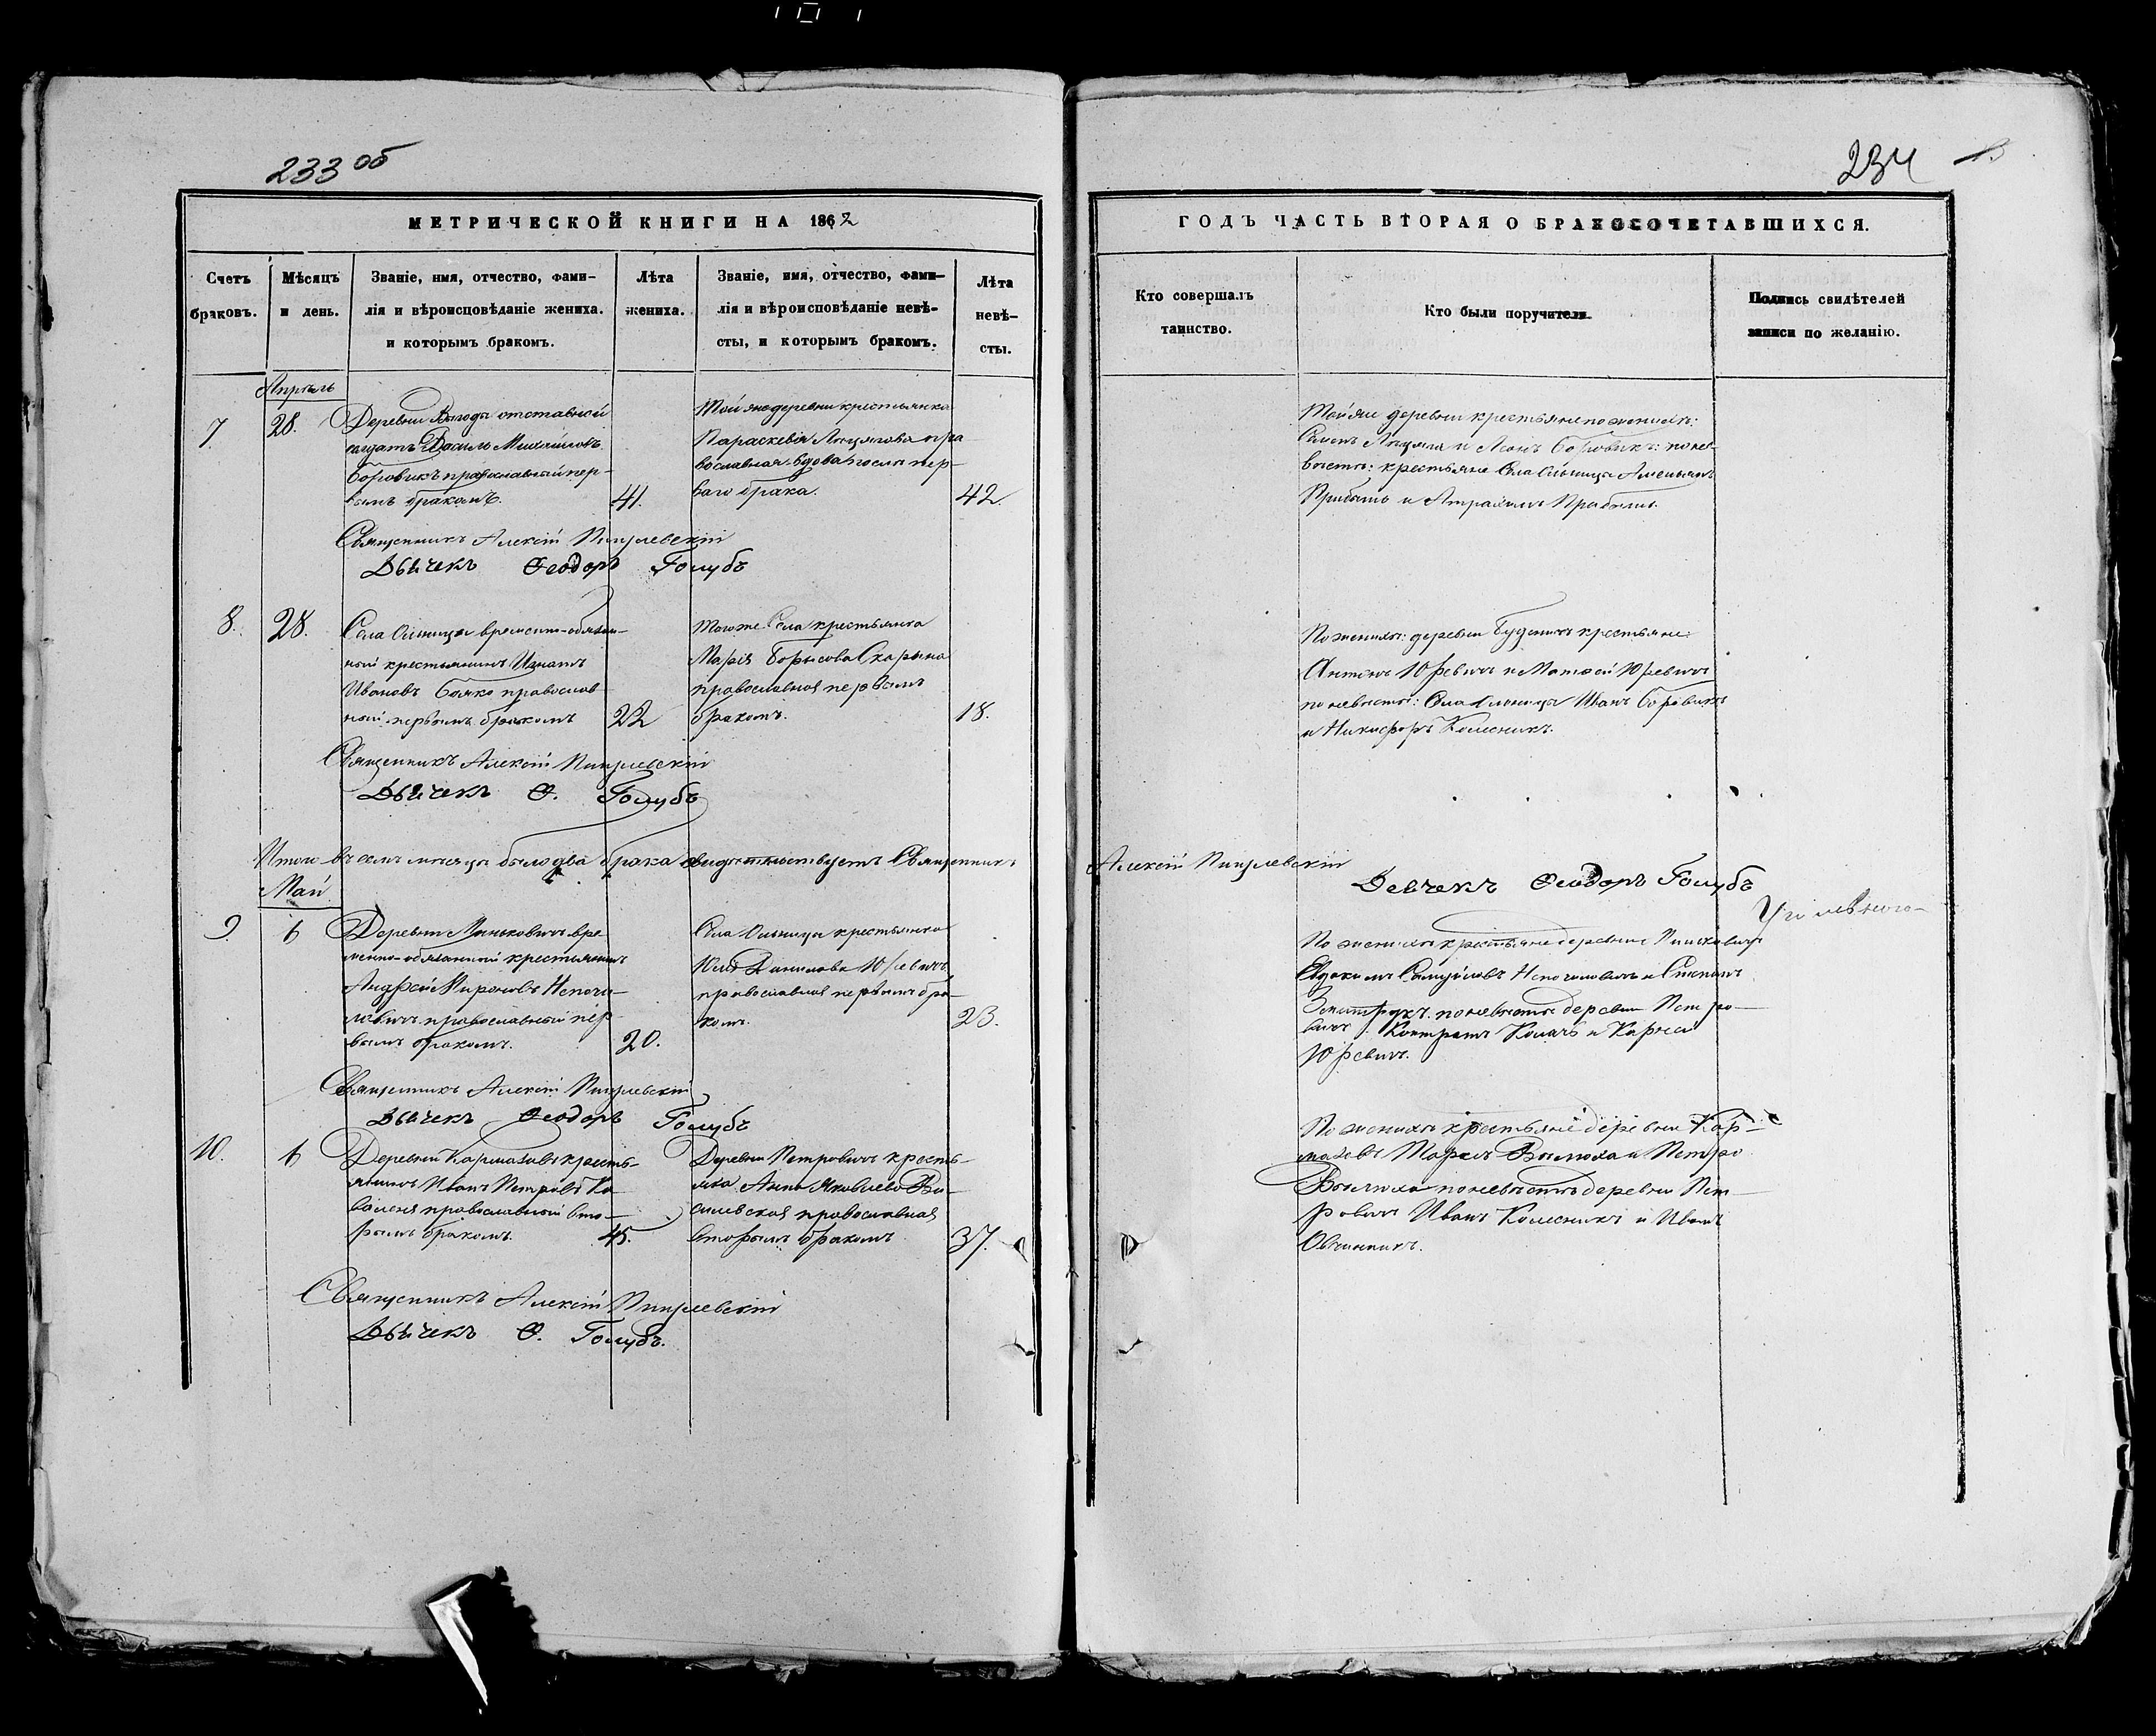 233 об
МЕТРИЧЕСКОЙ КНИГИ НА 1862
Счетъ браковъ.
Мѣсяцъ и день.
Званіе, имя, отчество, фами-
лія и вѣроисповѣданіе жениха.
и которымъ бракомъ.
Лѣта жениха.
Званіе, имя, отчество, фами-
лія и вѣроисповѣданіе невѣ-
сты, и которымъ бракомъ.
Лѣта невѣ-
сты.
Апрѣль
7
28.
Деревни Выгоды отставной
солдатъ Василь Михайловъ
Боровикъ православный пер-
вымъ бракомъ.
41.
Той же деревни крестьянка
Параскевія пра
вославная вдова послѣ пер-
ваго брака.
42.
Священникъ Алексій
Дьячекъ Ѳеодоръ Голубъ
8.
28.
Села временно-обязан-
ный крестьянинъ Игнатъ
Ивановъ Бойко православ-
ный первымъ бракомъ
22
Тогоже Села крестьянка
Марія Борисова Скарына
православная первымъ
бракомъ.
18.
Священникъ Алексій
Дьячекъ Ѳ. Голубъ
Итого въ семъ мѣсяцѣ было два брака свидѣтельствуетъ Священникъ
Май
9.
6
Деревни вре
менно-обязанный крестьянинъ
Андрей Мироновъ Непочи-
ловичъ православный пер
вымъ бракомъ.
20.
Села крестьянка
Данилова Юревичъ
православная первымъ бра-
комъ.
23.
Священникъ Алексій
Дьячекъ Ѳеодоръ Голубъ
10.
6
Деревни Кармазовъ кресть-
янинъ Иванъ Петровъ Ко
валеня православный вто-
рымъ бракомъ.
45.
Деревни Петровичъ кресть-
янка Анна Яковлева Ва-
силевская православная
вторымъ бракомъ
37.
Священникъ Алексій
Дьячекъ Ѳ. Голубъ.
234
ГОДЪ ЧАСТЬ ВТОРАЯ О БРАКОСОЧЕТАВШИХСЯ.
Кто совершалъ
таинство.
Кто были поручители
Подпись свидѣтелей
записи по желанію.
Той же деревни крестьяне по женихѣ:
Семенъ и Леонъ Боровикъ: по не-
вѣстѣ: крестьяне Села
Прибыть и Прибыть.
По женихѣ: деревни крестьяне:
Антонъ Юревичъ и Матвей Юревичъ
по невѣстѣ: Села Иванъ Боровикъ
и Никифоръ Колесникъ.
Алексій
Дьячекъ Ѳеодоръ Голубъ
По женихѣ крестьяне деревни
Евдокимъ Самуйловъ Непочиловичъ и Степанъ
по невѣстѣ деревни Петро-
вичъ: Контратъ и Карней
Юревичъ.
По женихѣ крестьяне деревни Кар-
мазовъ Марко и Петро
по невѣстѣ деревни Пет-
ровичъ Иванъ Колесникъ и Иванъ
Овчинникъ.